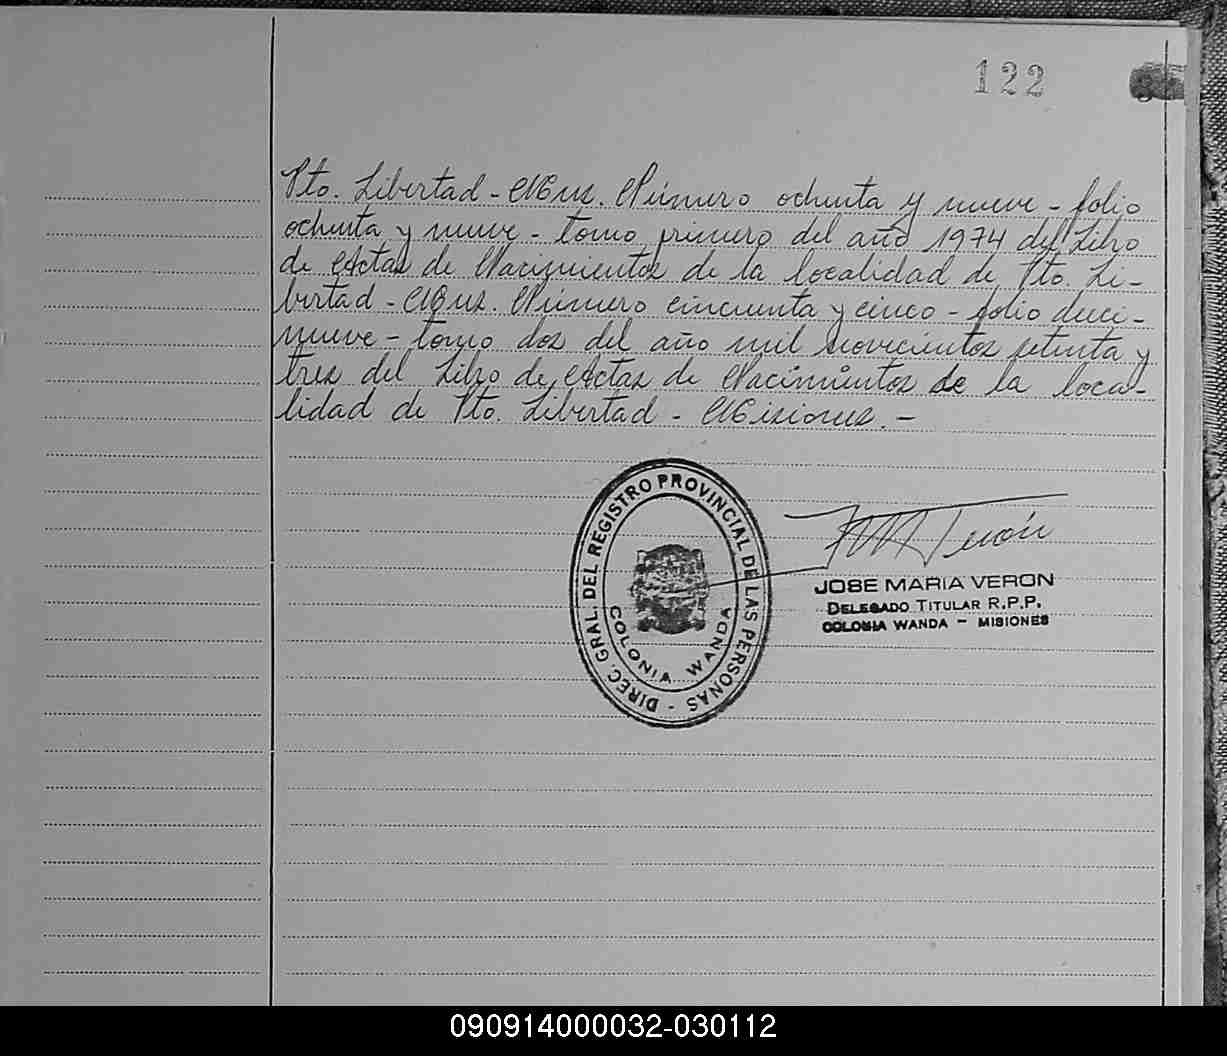 122
Pto. Libertad - Mnes. Número ochenta y nueve - folio
ochenta y nueve - tomo primero del año 1974 del Libro
de Actas de Nacimientos de la localidad de Pto. Li-
bertad - Mnes. Número cincuenta y cinco - folio dieci-
nueve - tomo dos del año mil novecientos setenta y
tres del Libro de Actas de Nacimientos de la loca-
lidad de Pto. Libertad - Misiones. -
DIREC. GRAL. DEL REGISTRO PROVINCIAL DE LAS PERSONAS -
COLONIA WANDA
JOSE MARIA VERON
DELEGADO TITULAR R.P.P.
COLONIA WANDA - MISIONES
090914000032-030112